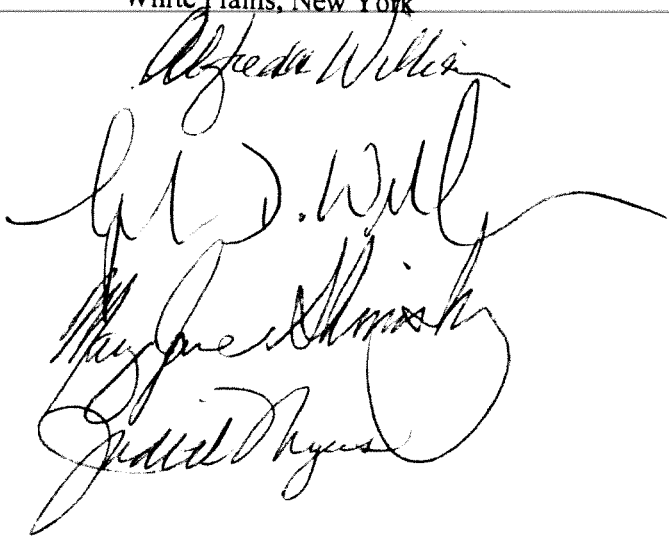 White Plains, New York
Alfreda Williams
D. W
Mary Jane Shimsky
Judith Myers